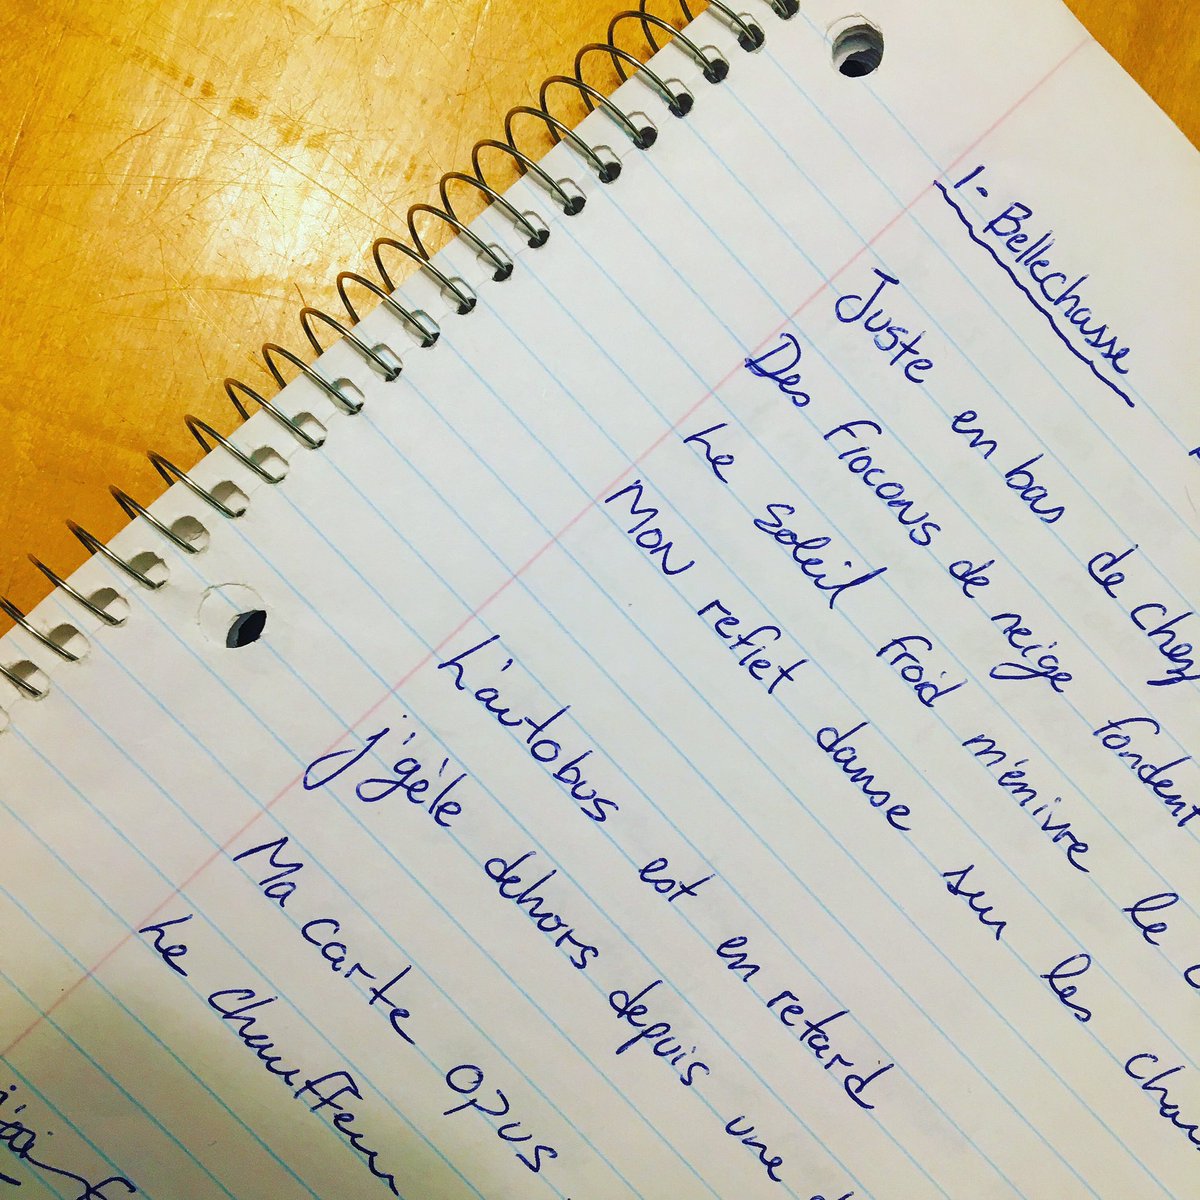 1- Bellechasse
Juste en bas de chez
Des flocons de neige fondent
Le soleil froid m'enivre le
Mon reflet danse sur les
L'autobus est en retard
j'gèle dehors depuis une
Ma carte opus
Le chauffeur
j'ai